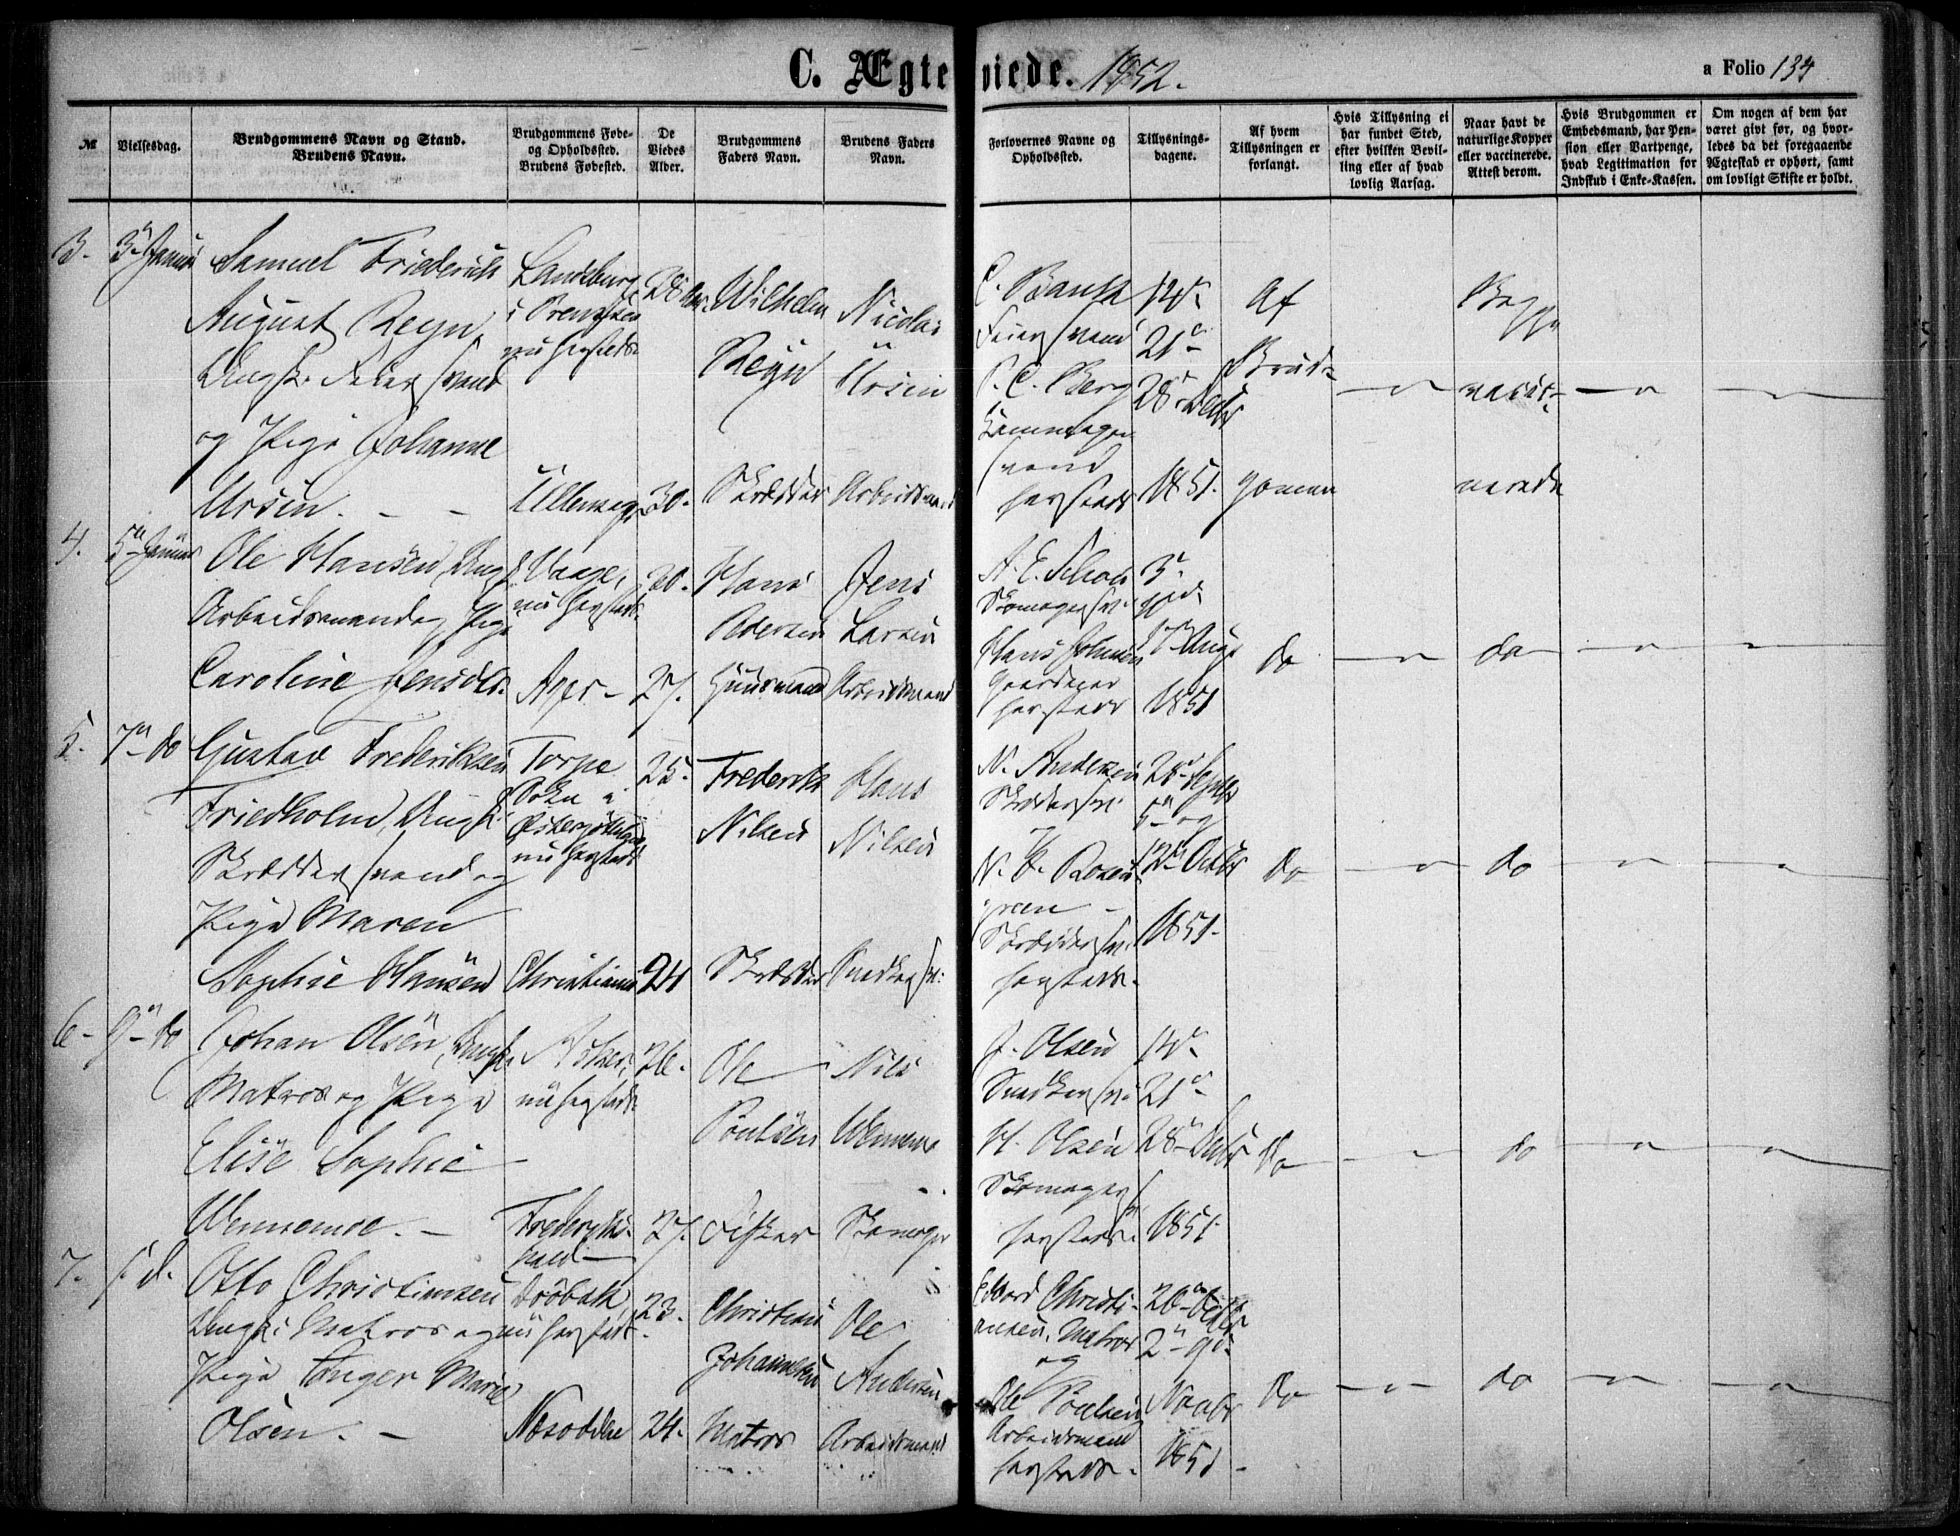 C. Ægteviede. 1852.
a Folio 134
№
Vielsesdag.
Brudgommens Navn og Stand.
Brudens Navn.
Brudgommens Føde-
og Opholdssted.
Brudens Fødested.
De
Viedes
Alder.
Brudgommens
Faders Navn.
Brudens Faders
Navn.
Forlovernes Navne og
Opholdssted.
Tillysnings-
dagene.
Af hvem
Tillysningen er
forlangt.
Hvis Tillysning ei
har fundet Sted,
efter hvilken Bevil-
ling eller af hvad
lovlig Aarsag.
Naar havt de
naturlige Kopper
eller vaccinerede.
Attest derom.
Hvis Brudgommen er
Embedsmand, har Pen-
sion eller Vartpenge,
hvad Legitimation for
Indskud i Enke-Kassen.
Om nogen af dem har
været givt før, og hvor-
ledes da det foregaaende
Ægteskab er ophørt, samt
om lovligt Skifte er holdt.
3.
3 Januar
Samuel Friederich
August Regn,
Ungk. Feiersvend
og Pige Johanne
Ursin.
Landsburg
i Preussen
nu hersteds
Ullensager
28 Aar.
30.
Wilhelm
Regn
Skrædder
Nicolai
Ursin
Arbeidsmand
C. Bank
Feiersvend
P. C. Berg
svend
hersteds
14
21
28 Decbr
1851.
Af
Brud-
gommen
Begge
vacci-
nerede
4.
5 Januar
Ole Hansen, Ungk.
Arbeidsmand og Pige
Caroline Jensdtr.
Vaage,
nu hersteds
Ager
30.
27.
Hans
Pedersen
Huusmand
Jens
Larsen
Arbeidsmand
A. E. Schou
Skomagersv.
Hans Johnsen
Gaardener
hersteds
3
10de
17 Aug
1851
do
do
5.
7 do
Gustav Frederiksen
Friedholm, Ungk.
Skræddersvend og
Pige Maren
Sophie Hansen
Torpe
Sokn i
Østergøthland
nu hersteds
Christiania
25.
24
Frederik
Nilsen
Skrædder
Hans
Nilsen
Snedkersv.
N. Andersen
Skræddersv.
N. P. Rosen-
green
Skræddersv.
hersteds.
28 Septbr
5 og
12 Octbr
1851.
do
do
6
9 do
Johan Olsen, Ungk.
Matros og Pige
Elise Sophie
Wennemoe.
Asker,
nu hersteds
Frederiks-
hald
26.
27.
Ole
Poulsen
Fisker
Nils
Wennemoe
Skomager
J. Olsen
Snedkersv.
H. Olsen
Skomagersv.
hersteds.
14
21
28 Decbr
1851
do
do
7.
s. d.
Otto Christiansen
Ungk. Matros og
Pige Inger Marie
Olsen.
Drøbak
nu hersteds
Næsodden
23.
24.
Christian
Johannesen
Matros
Ole
Andersen
Arbeidsmand
Edvard Christi-
ansen, Matros
og
Ole Poulsen
Arbeidsmand
hersteds.
26 Octbr
2 9de
Novbr
1851
do
do